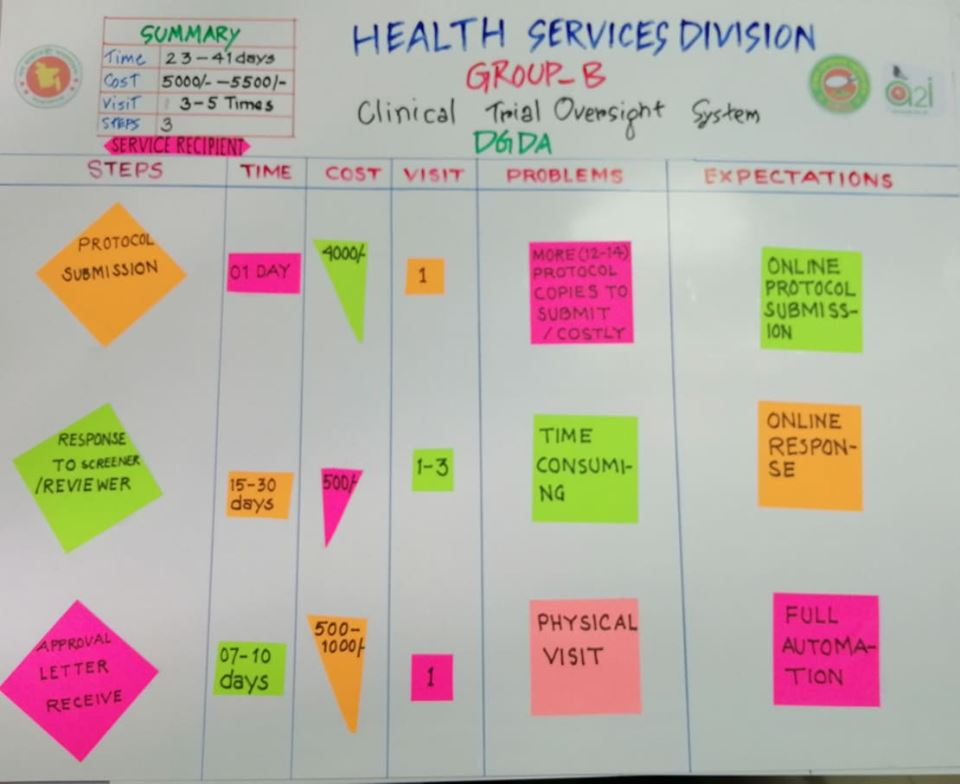 SUMMARY
Time 23-41days
Cost 5000/- -5500/-
Visit 3-5 Times
STEPS 3
HEALTH SERVICES DIVISION
GROUP-B
Clinical Trial Oversight System
DGDA
a2i
SERVICE RECIPIENT
STEPS TIME COST VISIT PROBLEMS EXPECTATIONS
PROTOCOL
SUBMISSION
01 DAY
4000/-
1
MORE (12-14)
PROTOCOL
COPIES TO
SUBMIT
/ COSTLY
ONLINE
PROTOCOL
SUBMISS-
ION
RESPONSE
TO SCREENER
/REVIEWER
15-30
days
500/-
1-3
TIME
CONSUMI-
NG
ONLINE
RESPON-
SE
APPROVAL
LETTER
RECEIVE
07-10
days
500-
1000/-
1
PHYSICAL
VISIT
FULL
AUTOMA-
TION